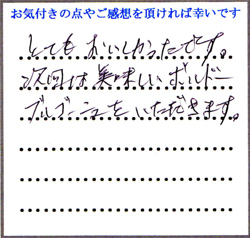 お気付きの点やご感想を頂ければ幸いです
とてもおいしかったです。
次回は美味しいボルドー
ブルゴーニュをいただきます。